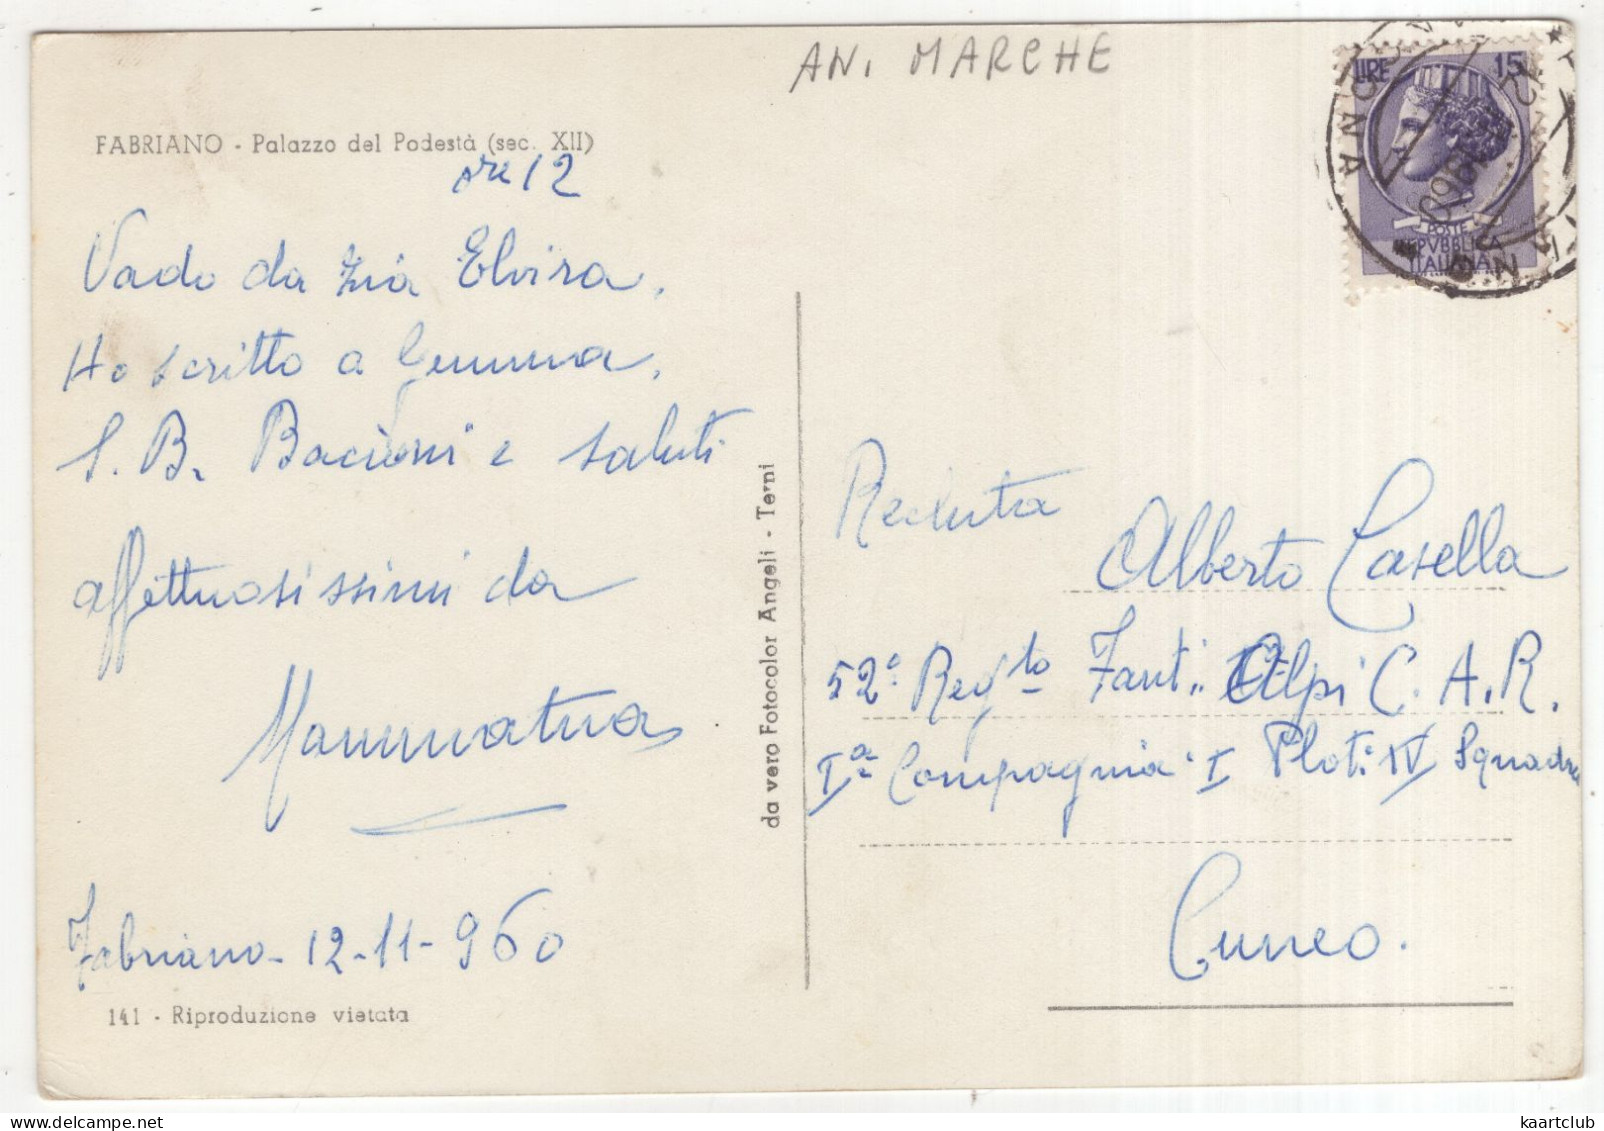 AN. MARCHE
FABRIANO - Palazzo del Podestà (sec. XII)
ore 12
Vado da zia Elvira.
Ho scritto a Gemma.
S. B. Bacioni e saluti
affettuosissimi da
Mammatua
Fabriano - 12-11-960
141 - Riproduzione vietata
da vero Fotocolor Angeli - Terni
LIRE 15
POSTE
REPVBBLICA
ITALIANA
Recluta
Alberto Casella
52° Regto Fant. Alpi C. A. R.
Ia Compagnia I Plot. IV Squadra
Cuneo.
kaartclub